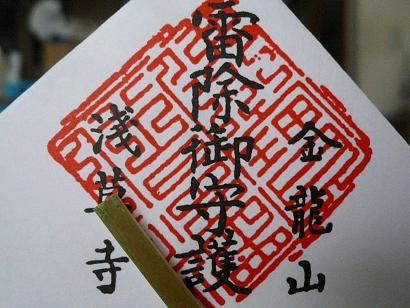 金龍山
雷除御守護
浅草寺